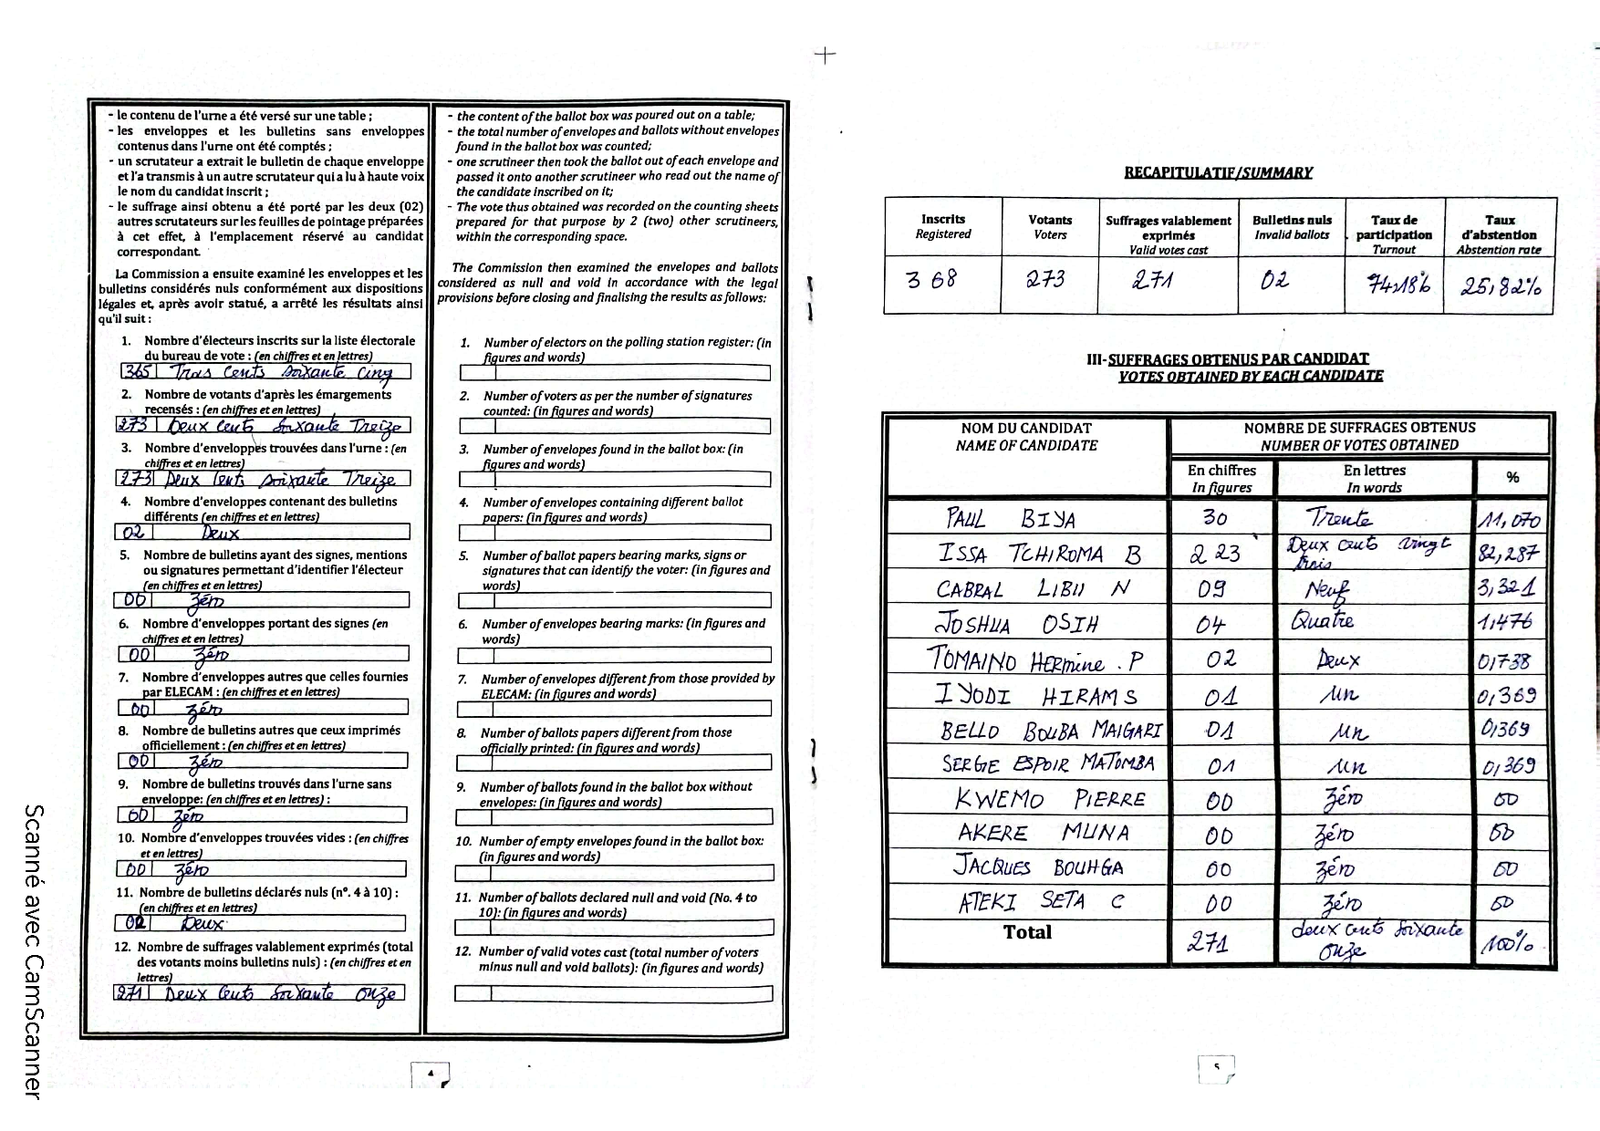 - le contenu de l'urne a été versé sur une table ;
- les enveloppes et les bulletins sans enveloppes
contenus dans l'urne ont été comptés ;
- un scrutateur a extrait le bulletin de chaque enveloppe
et l'a transmis à un autre scrutateur qui a lu à haute voix
le nom du candidat inscrit ;
- le suffrage ainsi obtenu a été porté par les deux (02)
autres scrutateurs sur les feuilles de pointage préparées
à cet effet, à l'emplacement réservé au candidat
correspondant.
La Commission a ensuite examiné les enveloppes et les
bulletins considérés nuls conformément aux dispositions
légales et, après avoir statué, a arrêté les résultats ainsi
qu'il suit :
1. Nombre d'électeurs inscrits sur la liste électorale
du bureau de vote : (en chiffres et en lettres)
365 Trois Cents Soixante Cinq
2. Nombre de votants d'après les émargements
recensés : (en chiffres et en lettres)
273 Deux Cents Soixante Treize
3. Nombre d'enveloppes trouvées dans l'urne : (en
chiffres et en lettres)
273 Deux Cents Soixante Treize
4. Nombre d'enveloppes contenant des bulletins
différents (en chiffres et en lettres)
02 Deux
5. Nombre de bulletins ayant des signes, mentions
ou signatures permettant d'identifier l'électeur
(en chiffres et en lettres)
00 Zéro
6. Nombre d'enveloppes portant des signes (en
chiffres et en lettres)
00 Zéro
7. Nombre d'enveloppes autres que celles fournies
par ELECAM : (en chiffres et en lettres)
00 Zéro
8. Nombre de bulletins autres que ceux imprimés
officiellement : (en chiffres et en lettres)
00 Zéro
9. Nombre de bulletins trouvés dans l'urne sans
enveloppe: (en chiffres et en lettres) :
00 Zéro
10. Nombre d'enveloppes trouvées vides : (en chiffres
et en lettres)
00 Zéro
11. Nombre de bulletins déclarés nuls (n°. 4 à 10) :
(en chiffres et en lettres)
02 Deux
12. Nombre de suffrages valablement exprimés (total
des votants moins bulletins nuls) : (en chiffres et en
lettres)
271 Deux Cents Soixante Onze
- the content of the ballot box was poured out on a table;
- the total number of envelopes and ballots without envelopes
found in the ballot box was counted;
- one scrutineer then took the ballot out of each envelope and
passed it onto another scrutineer who read out the name of
the candidate inscribed on it;
- The vote thus obtained was recorded on the counting sheets
prepared for that purpose by 2 (two) other scrutineers,
within the corresponding space.
The Commission then examined the envelopes and ballots
considered as null and void in accordance with the legal
provisions before closing and finalising the results as follows:
1. Number of electors on the polling station register: (in
figures and words)
2. Number of voters as per the number of signatures
counted: (in figures and words)
3. Number of envelopes found in the ballot box: (in
figures and words)
4. Number of envelopes containing different ballot
papers: (in figures and words)
5. Number of ballot papers bearing marks, signs or
signatures that can identify the voter: (in figures and
words)
6. Number of envelopes bearing marks: (in figures and
words)
7. Number of envelopes different from those provided by
ELECAM: (in figures and words)
8. Number of ballots papers different from those
officially printed: (in figures and words)
9. Number of ballots found in the ballot box without
envelopes: (in figures and words)
10. Number of empty envelopes found in the ballot box:
(in figures and words)
11. Number of ballots declared null and void (No. 4 to
10): (in figures and words)
12. Number of valid votes cast (total number of voters
minus null and void ballots): (in figures and words)
4
Scanné avec CamScanner
RECAPITULATIF/SUMMARY
Inscrits Votants Suffrages valablement Bulletins nuls Taux de Taux
Registered Voters exprimés Invalid ballots participation d'abstention
Valid votes cast Turnout Abstention rate
368 273 271 02 74,18% 25,82%
III-SUFFRAGES OBTENUS PAR CANDIDAT
VOTES OBTAINED BY EACH CANDIDATE
NOM DU CANDIDAT NOMBRE DE SUFFRAGES OBTENUS
NAME OF CANDIDATE NUMBER OF VOTES OBTAINED
En chiffres En lettres %
In figures In words
PAUL BIYA 30 Trente 11,070
ISSA TCHIROMA B 223 Deux cents vingt trois 82,287
CABRAL LIBII N 09 Neuf 3,321
JOSHUA OSIH 04 Quatre 1,476
TOMAINO HERmine . P 02 Deux 0,738
IYODI HIRAM S 01 un 0,369
BELLO BOUBA MAIGARI 01 un 0,369
SERGE ESPOIR MATOMBA 01 un 0,369
KWEMO PIERRE 00 Zéro 00
AKERE MUNA 00 Zéro 00
JACQUES BOUHGA 00 Zéro 00
ATEKI SETA C 00 Zéro 00
Total 271 deux cents soixante onze 100%
5